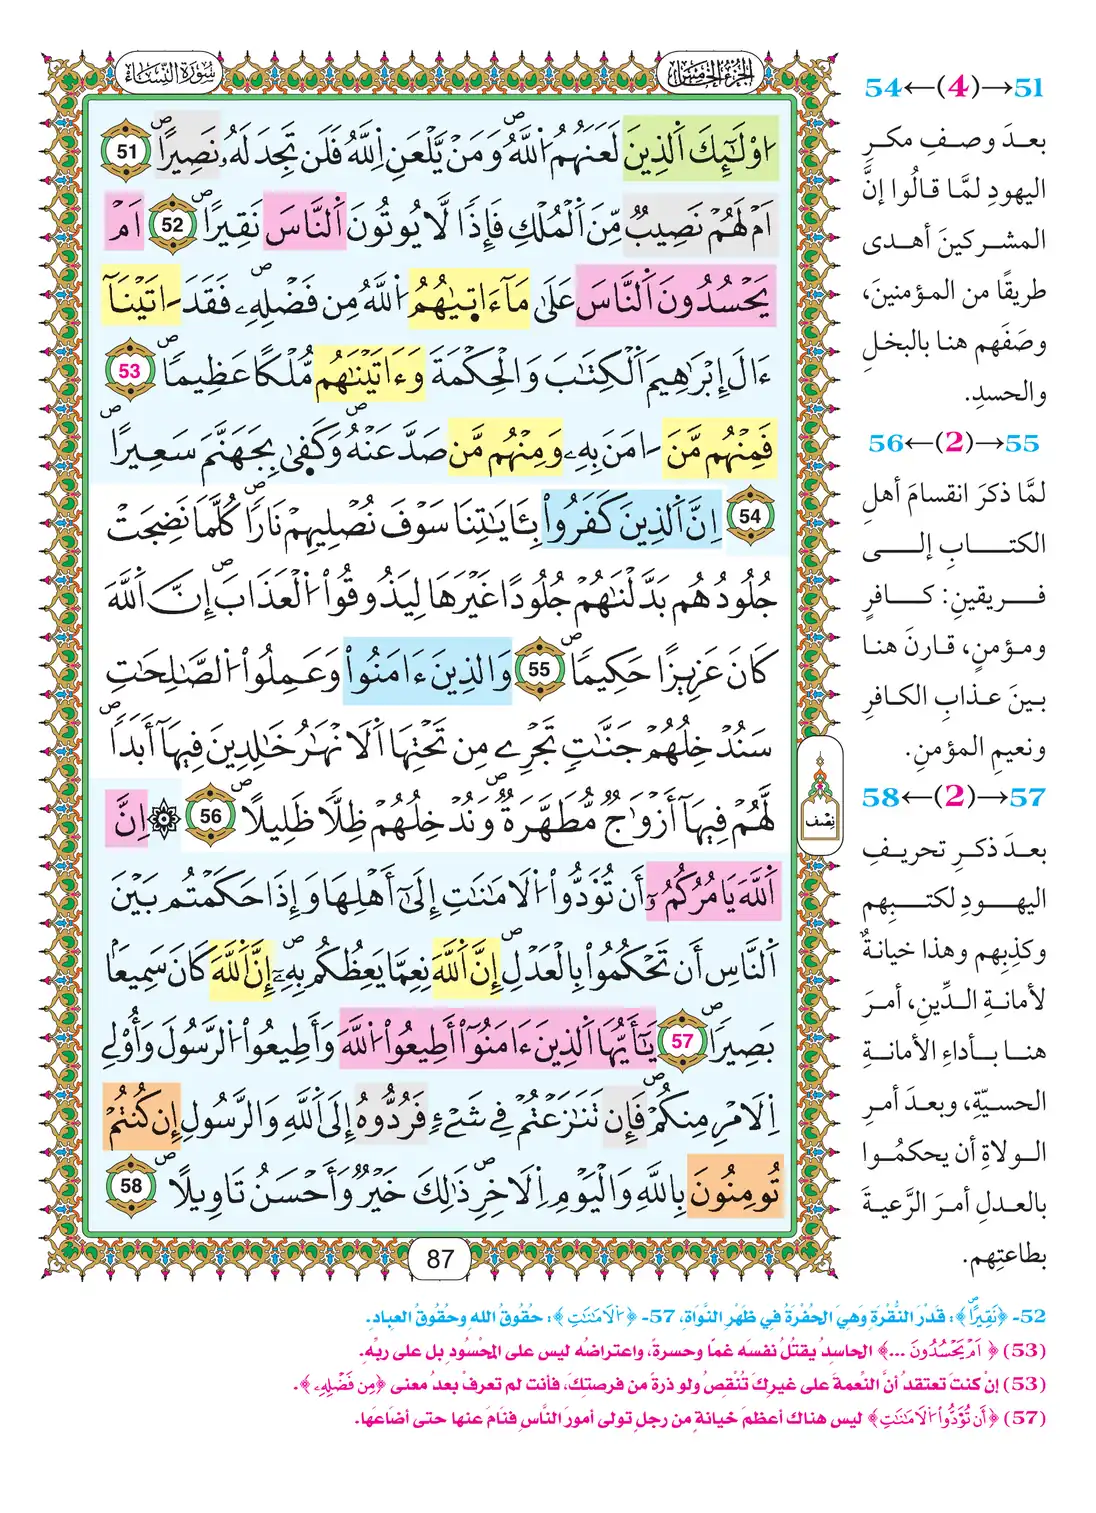 الجزء الخامس
سورة النساء
اوْلَٰٓئِكَ اَ۬لذِينَ لَعَنَهُمُ اُ۬للَّهُ وَمَنْ يَّلْعَنِ اِ۬للَّهُ فَلَن تَجِدَ لَهُۥ نَصِيراًۖ 51
اَمْ لَهُمْ نَصِيبٞ مِّنَ اَ۬لْمُلْكِ فَإِذاٗ لَّا يُوتُونَ اَ۬لنَّاسَ نَقِيراًۖ 52 اَمْ
يَحْسُدُونَ اَ۬لنَّاسَ عَلَىٰ مَآ ءَات۪يٰهُمُ اُ۬للَّهُ مِن فَضْلِهِۦۖ فَقَدَ اٰتَيْنَآ
ءَالَ إِبْرَٰهِيمَ اَ۬لْكِتَٰبَ وَالْحِكْمَةَ وَءَاتَيْنَٰهُم مُّلْكاً عَظِيماٗۖ 53
فَمِنْهُم مَّنَ اٰمَنَ بِهِۦ وَمِنْهُم مَّن صَدَّ عَنْهُۖ وَكَف۪يٰ بِجَهَنَّمَ سَعِيراًۖ
54 اِنَّ اَ۬لذِينَ كَفَرُواْ بِـَٔايَٰتِنَا سَوْفَ نُصْلِيهِمْ نَاراٗۖ كُلَّمَا نَضِجَتْ
جُلُودُهُم بَدَّلْنَٰهُمْ جُلُوداً غَيْرَهَا لِيَذُوقُواْ اُ۬لْعَذَابَۖ إِنَّ اَ۬للَّهَ
كَانَ عَزِيزاً حَكِيماٗۖ 55 وَالذِينَ ءَامَنُواْ وَعَمِلُواْ اُ۬لصَّٰلِحَٰتِ
سَنُدْخِلُهُمْ جَنَّٰتٖ تَجْرِے مِن تَحْتِهَا اَ۬لَانْهَٰرُ خَٰلِدِينَ فِيهَآ أَبَداٗۖ
لَّهُمْ فِيهَآ أَزْوَٰجٞ مُّطَهَّرَةٞۖ وَنُدْخِلُهُمْ ظِلّاٗ ظَلِيلاًۖ 56 ۞ اِنَّ
اَ۬للَّهَ يَامُرُكُمُۥٓ أَن تُؤَدُّواْ اُ۬لَامَٰنَٰتِ إِلَىٰٓ أَهْلِهَا وَإِذَا حَكَمْتُم بَيْنَ
اَ۬لنَّاسِ أَن تَحْكُمُواْ بِالْعَدْلِۖ إِنَّ اَ۬للَّهَ نِعِمَّا يَعِظُكُم بِهِۦٓۖ إِنَّ اَ۬للَّهَ كَانَ سَمِيعاَۢ
بَصِيراٗۖ 57 يَٰٓأَيُّهَا اَ۬لذِينَ ءَامَنُوٓاْ أَطِيعُواْ اُ۬للَّهَ وَأَطِيعُواْ اُ۬لرَّسُولَ وَأُوْلِے
اِ۬لَامْرِ مِنكُمْۖ فَإِن تَنَٰزَعْتُمْ فِے شَےْءٖ فَرُدُّوهُ إِلَى اَ۬للَّهِ وَالرَّسُولِ إِن كُنتُمْ
تُومِنُونَ بِاللَّهِ وَالْيَوْمِ اِ۬لَاخِرِۖ ذَٰلِكَ خَيْرٞ وَأَحْسَنُ تَاوِيلاًۖ 58
87
نصف
51→(4)←54
بعدَ وصفِ مكرِ
اليهودِ لمَّا قالُوا إنَّ
المشركينَ أهدى
طريقًا من المؤمنينَ،
وصَفَهم هنا بالبخلِ
والحسدِ.
55→(2)←56
لمَّا ذكرَ انقسامَ أهلِ
الكتابِ إلى
فريقينِ: كافرٍ
ومؤمنٍ، قارنَ هنا
بينَ عذابِ الكافرِ
ونعيمِ المؤمنِ.
57→(2)←58
بعدَ ذكرِ تحريفِ
اليهودِ لكتبِهم
وكذِبِهم وهذا خيانةٌ
لأمانةِ الدِّينِ، أمرَ
هنا بأداءِ الأمانةِ
الحسيّةِ، وبعدَ أمرِ
الولاةِ أن يحكمُوا
بالعدلِ أمرَ الرَّعيةَ
بطاعتِهم.
52- ﴿نَقِيراًۖ﴾: قَدْرَ النُّقرَةِ وَهِيَ الحُفْرَةُ فِي ظَهْرِ النَّوَاةِ، 57- ﴿اُ۬لَامَٰنَٰتِ﴾: حُقُوقُ اللهِ وحُقُوقُ العِبادِ.
(53) ﴿اَمْ يَحْسُدُونَ ...﴾ الحاسِدُ يقتُلُ نفسَه غمًا وحسرةً، واعتراضُه ليس على المحْسُودِ بل على ربِّهِ.
(53) إنْ كنتَ تعتقدُ أنَّ النِّعمةَ على غيرِكَ تُنْقِصُ ولو ذرةً من فرصتِكَ، فأنت لم تعرفْ بعدُ معنى ﴿مِن فَضْلِهِۦ﴾.
(57) ﴿أَن تُؤَدُّواْ اُ۬لَامَٰنَٰتِ﴾ ليس هناك أعظمَ خيانةٍ من رجلٍ تولى أمورَ النَّاسِ فنَامَ عنها حتى أضَاعَها.